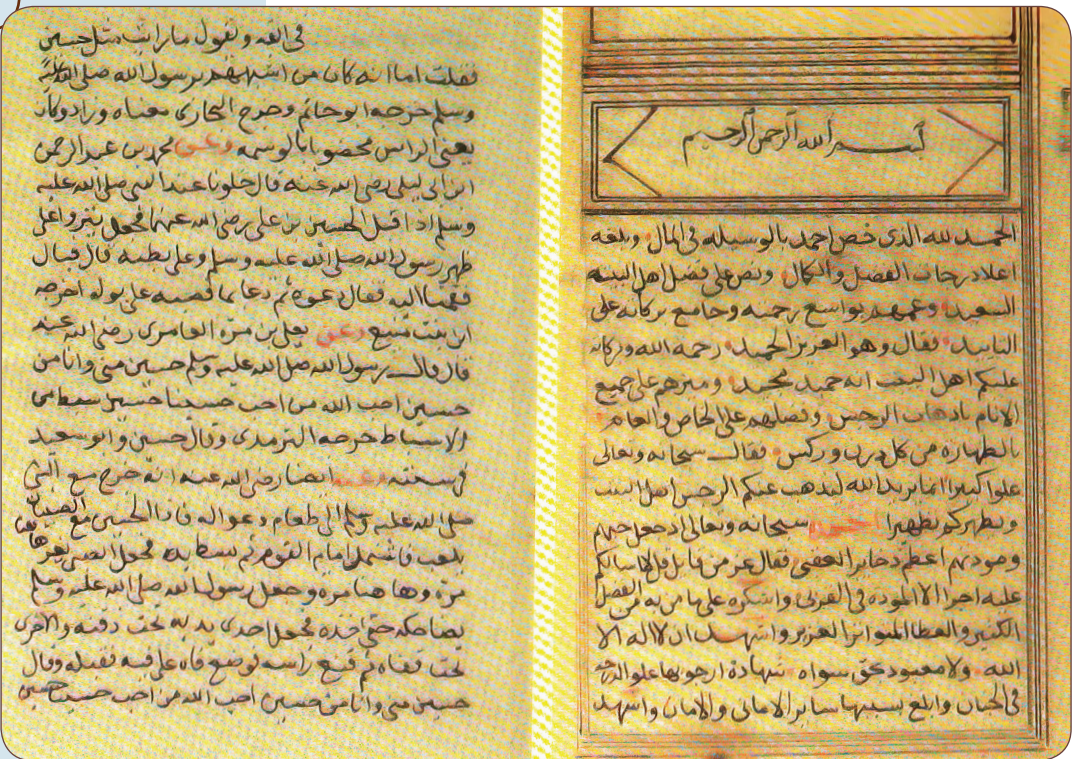 بسم الله الرحمن الرحيم
الحمد لله الذي خص احمد بالوسيله في المآل وبلغه
اعلا درجات الفضل والكمال ونص على فضل اهل البيته
السعيد وعمهم بواسع رحمته وجامع بركاته على
التابيد فقال وهو العزيز الحميد رحمة الله وبركاته
عليكم اهل البيت انه حميد مجيد وميزهم على جميع
الانام باذهاب الرجس وفضلهم على الخاص والعام
بالطهارة من كل درن وركس فقال سبحانه وتعالى
علوا كبيرا انما يريد الله ليذهب عنكم الرجس اهل البيت
ويطهركم تطهيرا احمده سبحانه وتعالى اذ جعل حبهم
ومودتهم اعظم ذخاير العقبى فقال عز من قايل قل لا اسالكم
عليه اجرا الا المودة في القربى واشكره على ما من به من الفضل
الكثير والعطا المتواتر الغزير واشهد ان لا اله الا
الله ولا معبود بحق سواه شهادة ارجو بها علو الدرجه
في الجنان وابلغ بسببها ساير الاماني والامان واشهد
في انفه ويقول ما رايت مثل حسين
فقلت اما انه كان من اشبههم برسول الله صلى الله عليه
وسلم خرجه ابو حاتم وخرج البخاري معناه وزاد وكان
يعني الراس مخضوبا بالوسمه وعن محمد بن عبد الرحمن
ابن ابي ليلى رضي الله عنه قال جلوسا عند النبي صلى الله عليه
وسلم اذ اقبل الحسين بن علي رضي الله عنهما فجعل ينزو اعلى
ظهر رسول الله صلى الله عليه وسلم وعلى بطنه قال فبال
فقمنا اليه فقال دعوه ثم دعا بما فصبه على بوله اخرجه
ابن بنت منيع وعن يعلى بن مرة العامري رضي الله عنه
قال قال رسول الله صلى الله عليه وسلم حسين مني وانا من
حسين احب الله من احب حسينا حسين سبط من
الاسباط خرجه الترمذي وقال حسين وابو سعيد
في سننه وعنه ايضا رضي الله عنه انه خرج مع النبي
صلى الله عليه وسلم الى طعام دعوا له فاذا الحسين مع الصبيان
يلعب فاشتمل امام القوم ثم بسط يده فجعل الصبي يفر هاهنا
مرة وهاهنا مرة وجعل رسول الله صلى الله عليه وسلم
يضاحكه حتى اخذه فجعل احدى يديه تحت دقنه والاخرى
تحت قفاه ثم قنع راسه فوضع فاه على فيه فقبله وقال
حسين مني وانا من حسين احب الله من احب حسينا حسين